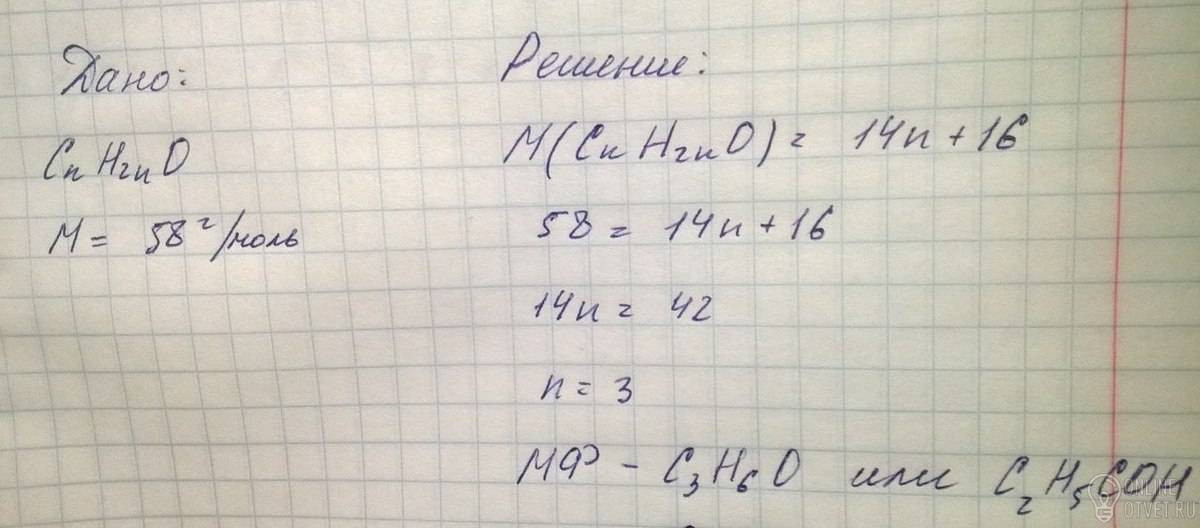 Дано:
CnH2nO
M = 58 г/моль
Решение:
M(CnH2nO) = 14n + 16
58 = 14n + 16
14n = 42
n = 3
МФ - C3H6O или C2H5COH
ONLINE
OTVET.RU